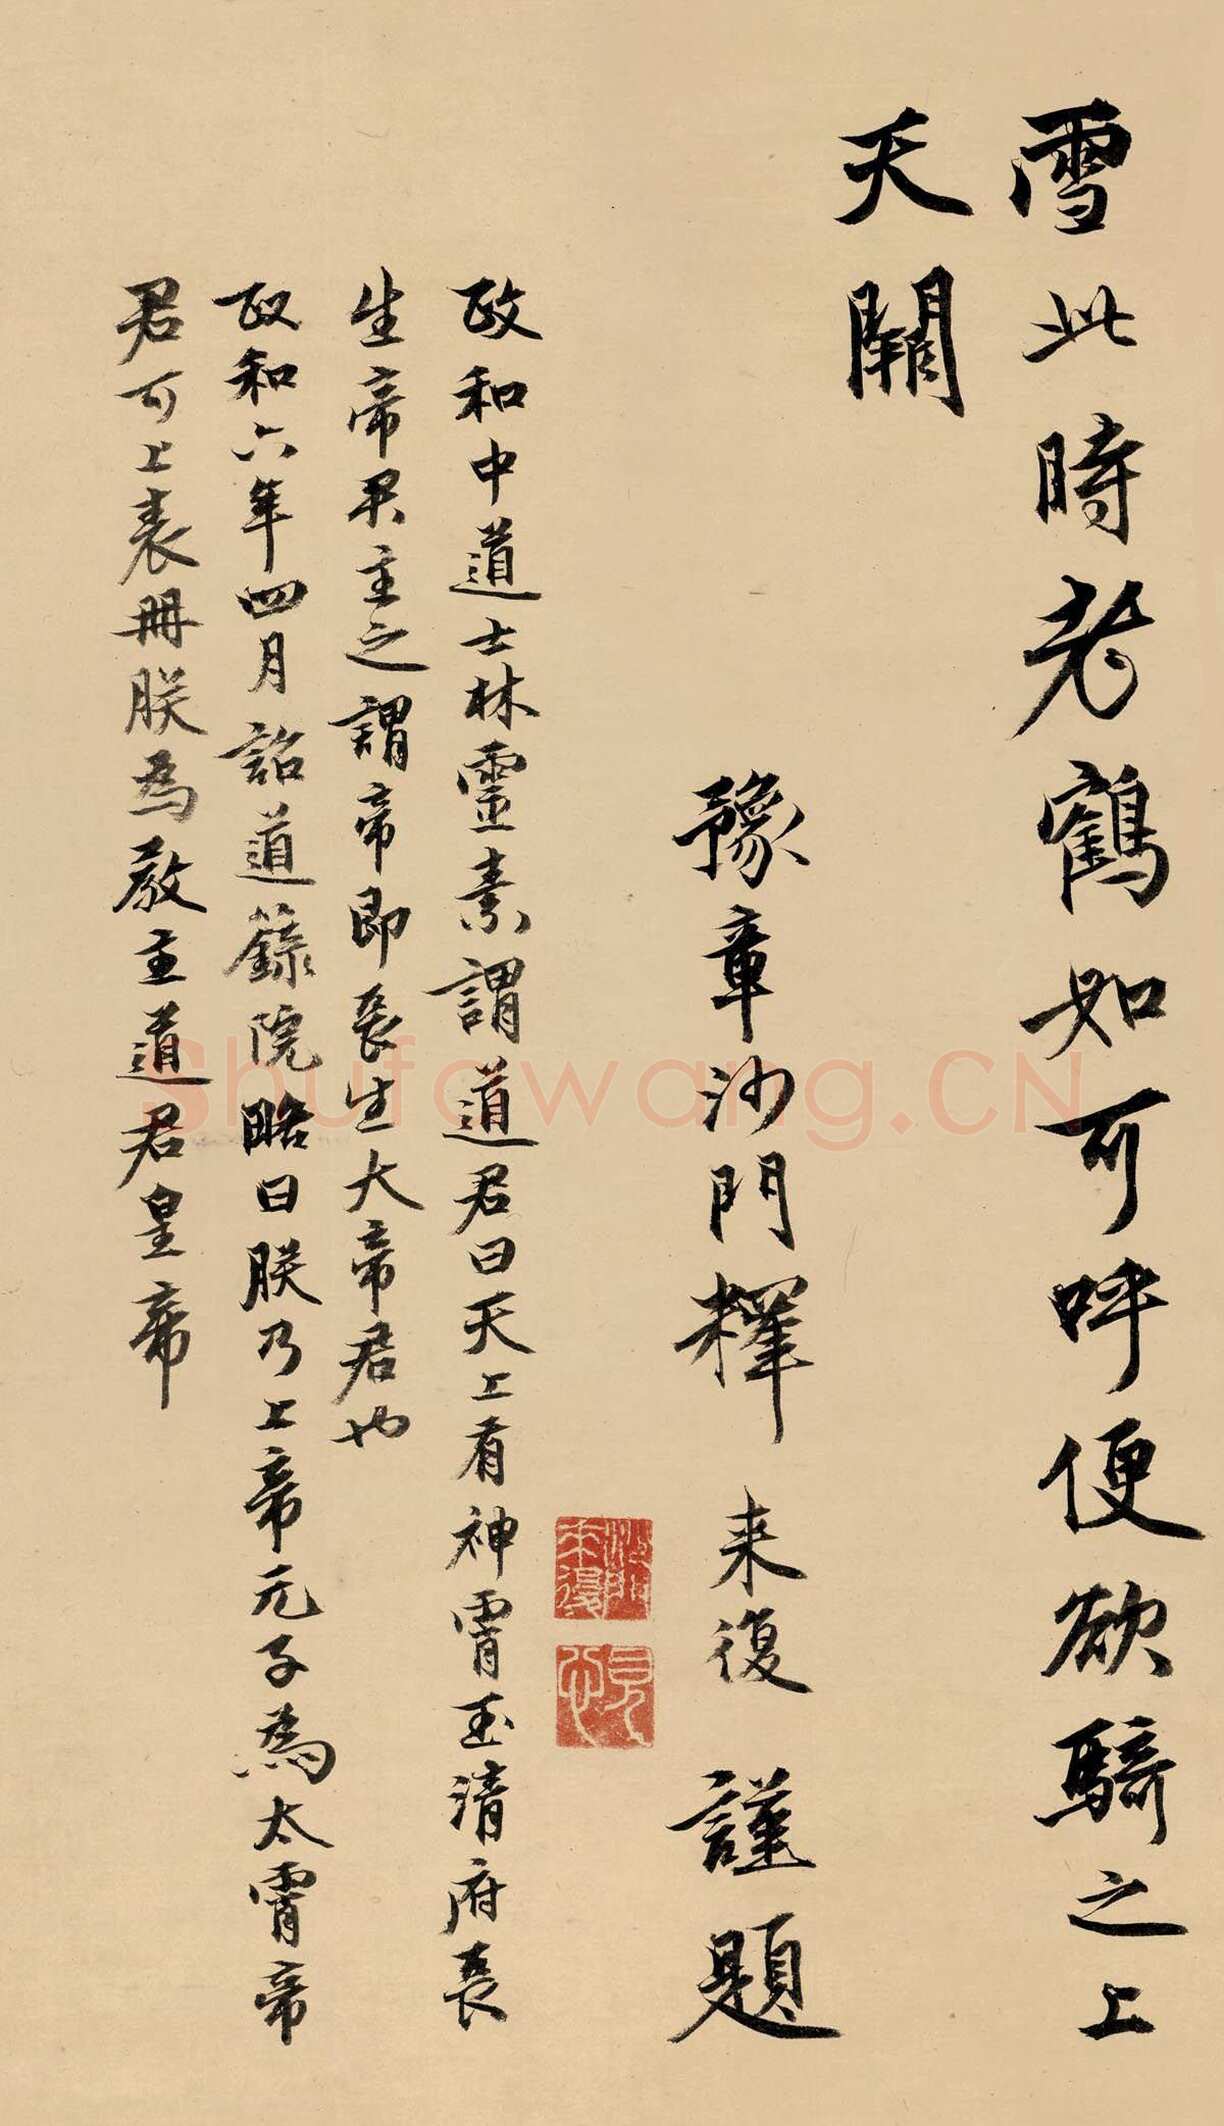 雪此時老鶴如可呼便欲騎之上
天關
豫章沙門釋来復謹題
沙門来復
見心
政和中道士林靈素謂道君曰天上有神霄玉清府長
生帝君主之謂帝即長生大帝君也
政和六年四月詔道籙院略曰朕乃上帝元子為太霄帝
君可上表冊朕為教主道君皇帝
Shufawang.CN